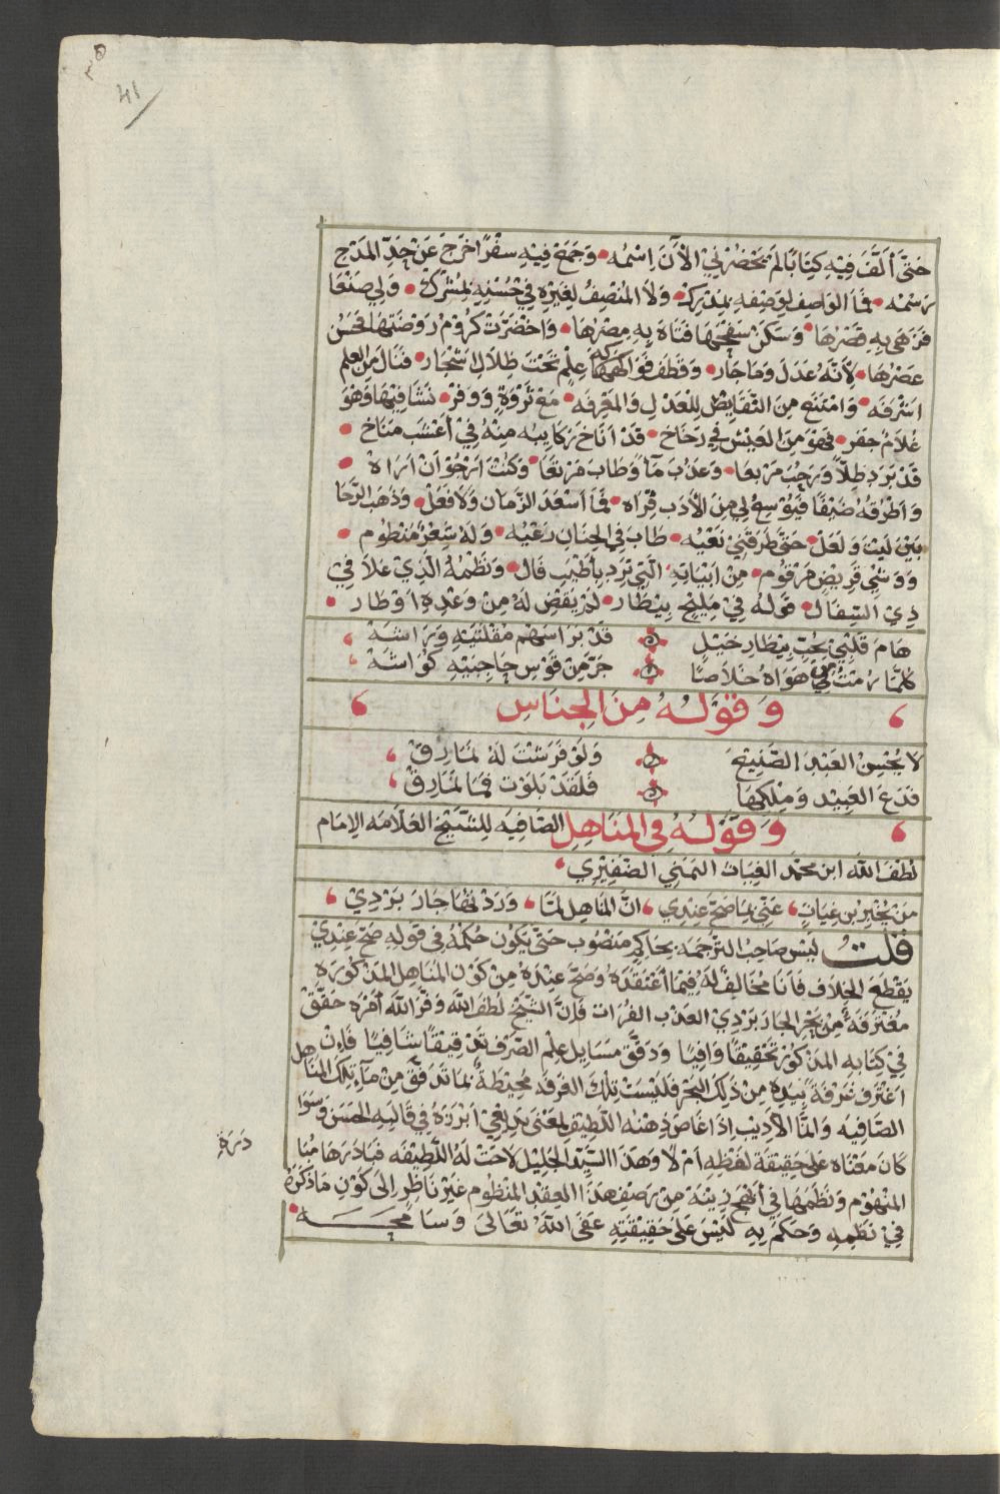 ٣٥
41
حتى ألف فيه كتابا لم يحضرني الآن اسمه • وجمع فيه سفرا خرج عن حد المدح
رسمه • فما الواصف لوصفه بمدرك • ولا المنصف لغيره في حسنه بمشرك • ولي صنعا
فزهى به قصرها • وسكن سفحها فتاه به مصرها • واخضرت كروم روضتها فحسن
عصرها • لأنه عدل وما جار • وقطف فواكهه علم تحت ظلال اشجار • فنال من العلم
اشرفه • وامتنع من النقايض للعدل والمعرفه • مع ثروة ووفر • نشا فيها وهو
غلام جفر • فهو من العيش في رخاخ • قد اناخ ركايبه منه في أعشب مناخ •
قد برد ظلا ورحب مربعا • وعذب مآ وطاب مرتعا • وكنت ارجو ان اراه •
واطرقه ضيفا فيوسع لي من الأدب قراه • فما اسعد الزمان ولا فعل • وذهب الرجا
بين ليت ولعل • حتى طرقني نعيه • طاب في الجنان رعيه • وله شعر منظوم •
ووشي قريض مرقوم • من ابياته التي ترد بأطيب فال • ونظمه الذي علا في
ذي السفال • قوله في مليح بيطار • لم يقض له من وعده اوطار •
هام قلبي بحب بيطار خيل ۞ قد برا سهم مقلتيه وراشه
كلما رمت من هواه خلاصا ۞ جر من قوس حاجبيه كواشه
وقوله من الجناس
لا يحسن العبد الصنيع ۞ ولو فرشت له نمارق
فدع العبيد وملكها ۞ فلقد بلوت فما نمارق
وقوله في المناهل الصافيه للشيخ العلامه الإمام
لطف الله ابن محمد الغياث اليمني الضفيري
من مخبر بن غياث ، عني بما صح عندي ، ان المناهل لما ، وردتها جار بردي
قلت ليس صاحب الترجمه بحاكم منصوب حتى يكون حكمه في قوله صح عندي
يقطع الخلاف فأنا مخالف له فيما أعتقده وصح عنده من كون المناهل المذكورة
مغترفة من بحر الجاربردي العذب الفرات فإن الشيخ لطف الله وقر الله أمره حقق
في كتابه المذكور تحقيقا وافيا ودقق مسايل علم الصرف تدقيقا شافيا فإن
اغترف غرفة بيده من ذلك البحر فليست تلك الغرفه محيطة بما تدفق من مآء تلك المناهل
الصافيه وانما الأديب اذا غاص ذهنه اللطيف لمعنى بديعي أبرزه في قالبه الحسن وسوا
كان معناه على حقيقة لفظه ام لا وهذا السيد الجليل لاحت له اللطيفه فبادرها مبا
درة
المنهوم ونظمها في أبهج زينة من رصيف هذا العقد المنظوم غير ناظر الى كون ما ذكره
في نظمه وحكم به ليس على حقيقته عفى الله تعالى وسامحه